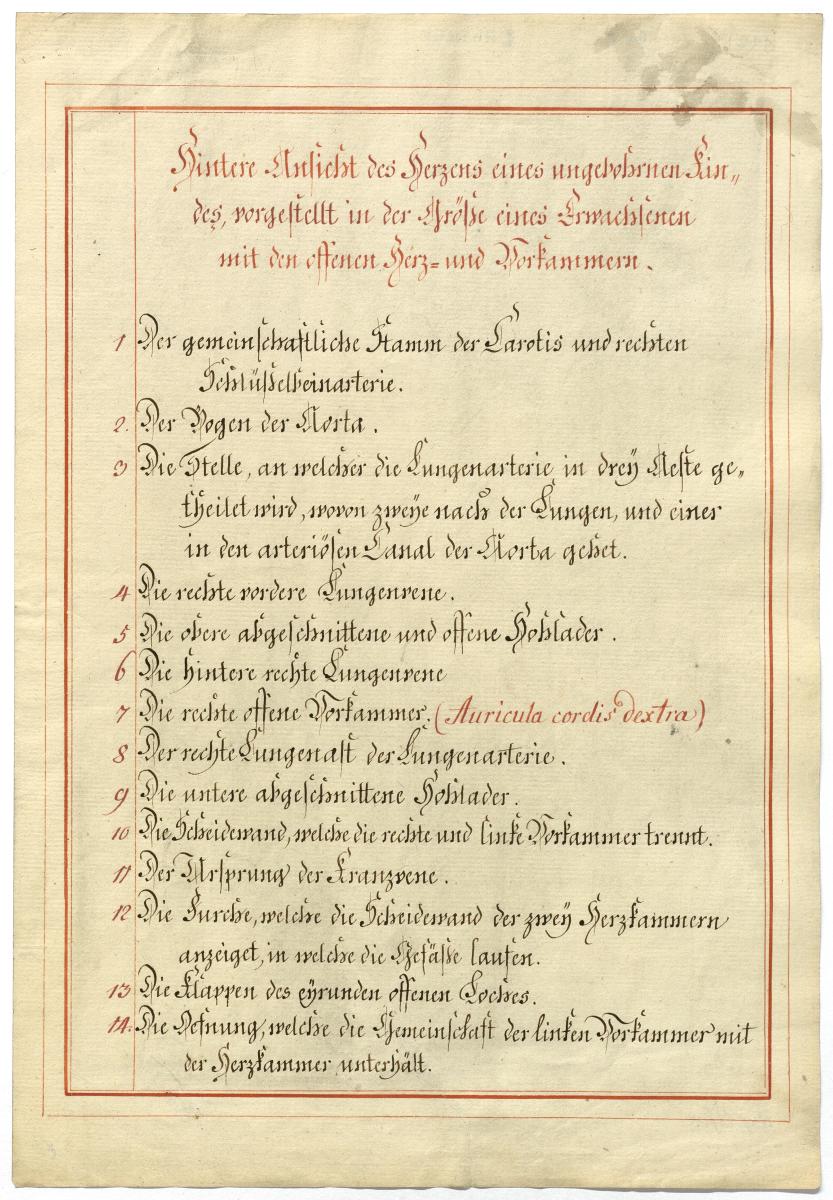 Hintere Ansicht des Herzens eines ungebohrnen Kin„
des, vorgestellt in der Größe eines Erwachsenen
mit den offenen Herz= und Vorkammern.
1 Der gemeinschaftliche Stamm der Carotis und rechten
Schlüßelbeinarterie.
2. Der Bogen der Aorta.
3 Die Stelle, an welcher die Lungenarterie in drey Aeste ge„
theilet wird, wovon zweÿe nach der Lungen, und einer
in den arteriösen Canal der Aorta gehet.
4 Die rechte vordere Lungenvene.
5 Die obere abgeschnittene und offene Hohlader.
6 Die hintere rechte Lungenvene
7 Die rechte offene Vorkammer. (Auricula cordis dextra)
8 Der rechte Lungenast der Lungenarterie.
9 Die untere abgeschnittene Hohlader.
10 Die Scheidewand, welche die rechte und linke Vorkammer trennt.
11 Der Ursprung der Kranzvene.
12 Die Furche, welche die Scheidewand der zweÿ Herzkammern
anzeiget, in welche die Gefäße laufen.
13 Die Klappen des eÿrunden offenen Loches.
14. Die Oefnung, welche die Gemeinschaft der linken Vorkammer mit
der Herzkammer unterhält.